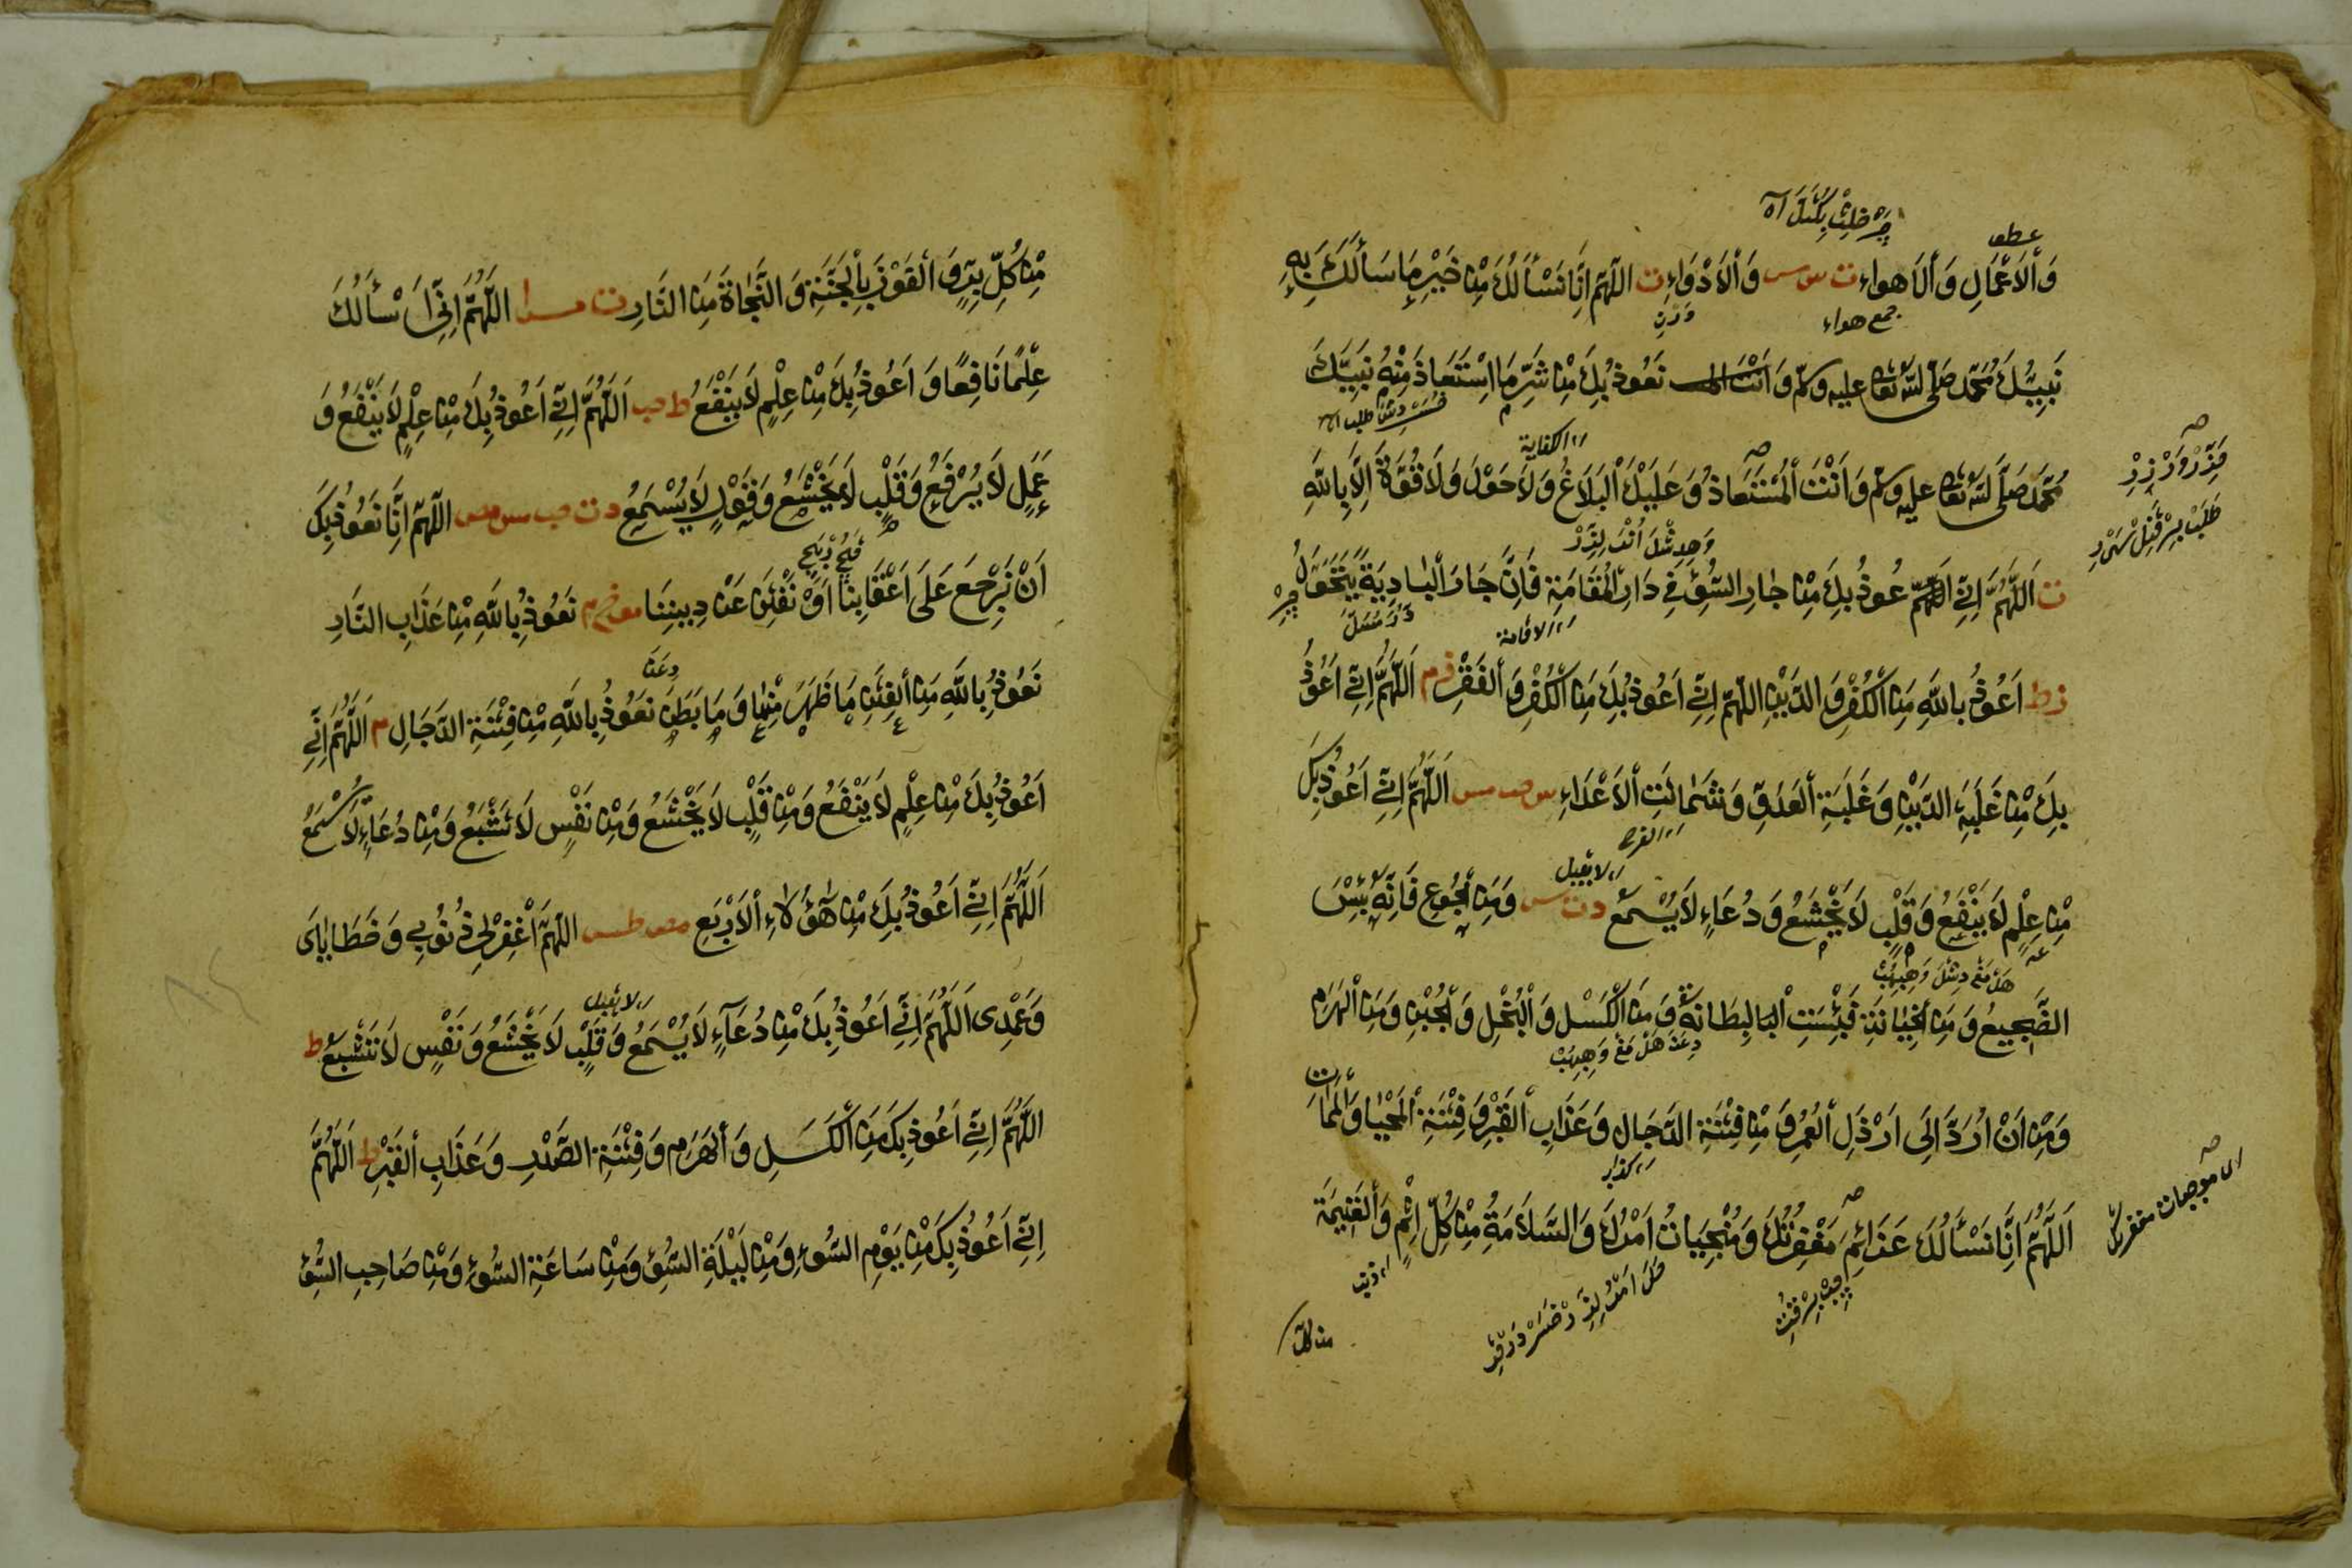 وَٱلْاَعْمَالِ وَٱلْاَهواء ت س مس وَٱلْاَدْوَاءِ ت اللّهمّ اِنَّا نَسْأَلُكَ مِنْ خَيْرِ مَا سَأَلَكَ بِهِ
جمع هواء
نَبِيُّكَ مُحَمَّد صَلَّى اللّٰه تعالى عليه وسلّم وَ نَعُوذُ بِكَ مِنْ شَرِّ مَا اسْتَعَاذَ مِنْهُ نَبِيُّكَ
// الكفاية
مُحَمَّد صَلَّى اللّٰه تعالى عليه وسلّم وَاَنْتَ ٱلْمُسْتَعَاذُ وَعَلَيْكَ ٱلْبَلَاغُ وَلَا حَوْلَ وَلَا قُوَّةَ اِلَّا بِاللّٰهِ
ت اَللّٰهُمَّ اِنِّي اَعُوذُ بِكَ مِنْ جارِ السُّوْءِ فِي دَارِ ٱلْمُقَامَةِ فَاِنَّ جَارَ ٱلْبَادِيَةِ يَتَحَوَّلُ
// الاقامة
اَعُوذُ بِاللّٰهِ مِنَ ٱلْكُفْرِ وَ الدَّيْنِ اللّٰهمّ اِنِّي اَعُوذُ بِكَ مِنَ ٱلْكُفْرِ وَ ٱلْفَقْرِ اَللّٰهُمَّ اِنِّي اَعُوذُ
بِكَ مِنْ غَلَبَةِ الدَّيْنِ وَغَلَبَةِ ٱلْعَدُوِّ وَشَمَاتَتِ ٱلْاَعْدَاءِ س حب مس اَللّٰهُمَّ اِنِّي اَعُوذُ بِكَ
// الفرح
// لا يقبل
مِنْ عِلْمٍ لَا يَنْفَعُ وَ قَلْبٍ لَا يَخْشَعُ وَ دُعَاءٍ لَا يُسْمَعُ د ت س وَمِنَ ٱلْجُوعِ فَاِنَّهُ بِئْسَ
الضَّجِيعُ وَ مِنَ ٱلْخِيَانَةِ فَبِئْسَتِ ٱلْبِطَانَة وَ مِنَ ٱلْكَسَلِ وَ ٱلْبُخْلِ وَ ٱلْجُبْنِ وَ مِنَ ٱلْهَرَمِ
وَمِنْ اَنْ اُرَدَّ اِلَى اَرْذَلِ ٱلْعُمُرِ وَ مِنْ فِتْنَةِ الدَّجَالِ وَعَذَابِ ٱلْقَبْرِ وَ فِتْنَةِ ٱلْمَحْيَا وَٱلْمَمَاتِ
اَللّٰهُمَّ اِنَّا نَسْأَلُكَ عَزَائِمَ مَغْفِرَتِكَ وَ مُنْجِيَاتِ اَمْرِكَ وَ السَّلَامَةَ مِنْ كُلِّ اِثْمٍ وَٱلْغَنِيمَةَ
// ذنب
من كلّ
مِنْ كُلِّ بِرٍّ وَ ٱلْفَوْزَ بِٱلْجَنَّةِ وَ النَّجَاةَ مِنَ النَّارِ اَللّٰهُمَّ اِنِّي اَسْأَلُكَ
عِلْمًا نَافِعًا وَ اَعُوذُ بِكَ مِنْ عِلْمٍ لَا يَنْفَعُ ط حب اَللّٰهُمَّ اِنِّي اَعُوذُ بِكَ مِنْ عِلْمٍ لَا يَنْفَعُ وَ
عَمَلٍ لَا يُرْفَعُ وَ قَلْبٍ لَا يَخْشَعُ وَ قَوْلٍ لَا يُسْمَعُ اللّٰهمّ اِنَّا نَعُوذُ بِكَ
اَنْ نَرْجِعَ عَلَى اَعْقَابِنَا اَوْ نُفْتَنَ عَنْ دِينِنَا نَعُوذُ بِاللّٰهِ مِنْ عَذَابِ النَّارِ
نَعُوذُ بِاللّٰهِ مِنَ ٱلْفِتَنِ مَا ظَهَرَ مِنْهَا وَ مَا بَطَنَ نَعُوذُ بِاللّٰهِ مِنْ فِتْنَةِ الدَّجَالِ م اَللّٰهُمَّ اِنِّي
اَعُوذُ بِكَ مِنْ عِلْمٍ لَا يَنْفَعُ وَ مِنْ قَلْبٍ لَا يَخْشَعُ وَ مِنْ نَفْسٍ لَا تَشْبَعُ وَ مِنْ دُعَاءٍ لَا يُسْمَعُ
اَللّٰهُمَّ اِنِّي اَعُوذُ بِكَ مِنْ هٰؤُلَاءِ ٱلْاَرْبَعِ مص طس اللّٰهُمَّ ٱغْفِرْلِي ذُنُوبِي وَ خَطَايَايَ
// لا يقبل
وَ عَمْدِى اَللّٰهُمَّ اِنِّي اَعُوذُ بِكَ مِنْ دُعَاءٍ لَا يُسْمَعُ وَ قَلْبٍ لَا يَخْشَعُ وَ نَفْسٍ لَا تَشْبَعُ ط
اللّٰهُمَّ اِنِّي اَعُوذُ بِكَ مِنَ ٱلْكَسَلِ وَ ٱلْهَرَمِ وَ فِتْنَةِ الصَّدْرِ وَ عَذَابِ ٱلْقَبْرِ ط اَللّٰهُمَّ
اِنِّي اَعُوذُ بِكَ مِنْ يَوْمِ السُّوْءِ وَ مِنْ لَيْلَةِ السُّوْءِ وَ مِنْ سَاعَةِ السُّوْءِ وَ مِنْ صَاحِبِ السُّوْءِ